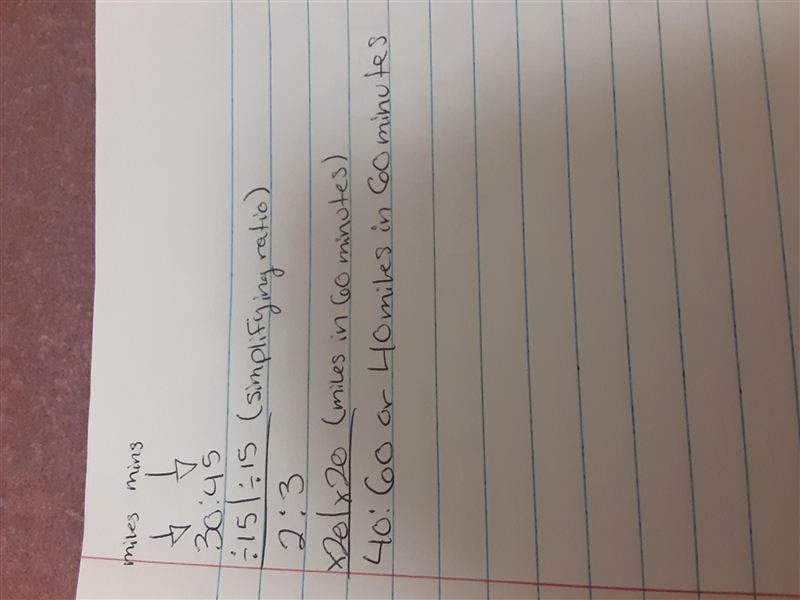 miles mins
↓ ↓
30:45
÷15|÷15 (simplifying ratio)
2:3
x20|x20 (miles in 60 minutes)
40:60 or 40miles in 60minutes